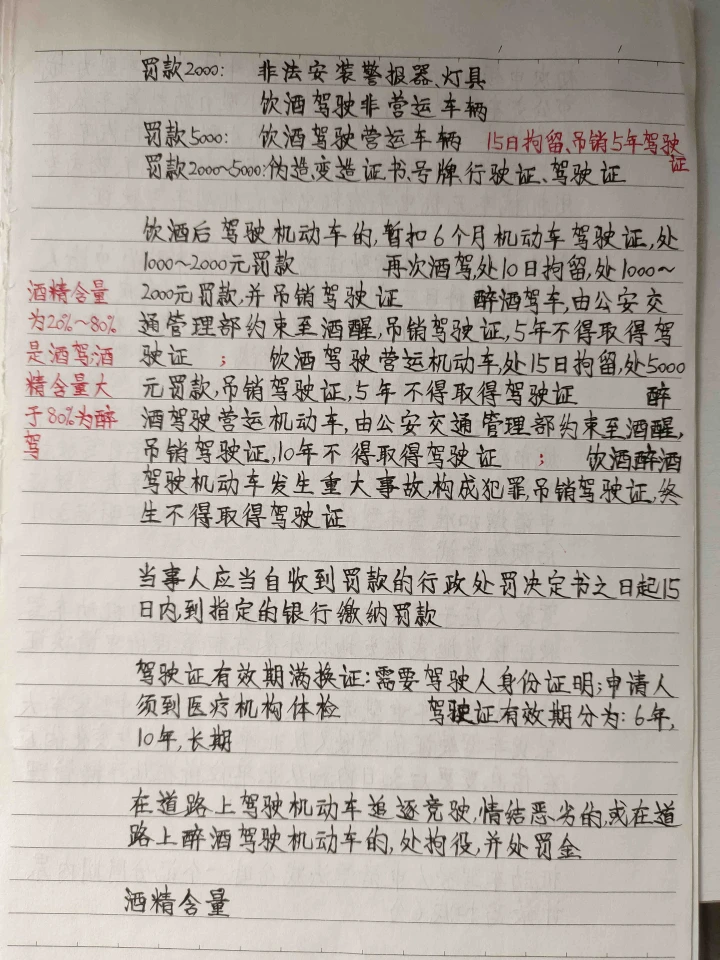 罚款2000: 非法安装警报器、灯具
饮酒驾驶非营运车辆
罚款5000: 饮酒驾驶营运车辆 15日拘留、吊销5年驾驶证
罚款2000~5000:伪造、变造证书、号牌、行驶证、驾驶证
饮酒后驾驶机动车的,暂扣6个月机动车驾驶证,处
1000~2000元罚款 再次酒驾,处10日拘留,处1000~
2000元罚款,并吊销驾驶证 醉酒驾车,由公安交
通管理部约束至酒醒,吊销驾驶证,5年不得取得驾
驶证 ; 饮酒驾驶营运机动车,处15日拘留,处5000
元罚款,吊销驾驶证,5年不得取得驾驶证 醉
酒驾驶营运机动车,由公安交通管理部约束至酒醒,
吊销驾驶证,10年不得取得驾驶证 ; 饮酒醉酒
驾驶机动车发生重大事故,构成犯罪,吊销驾驶证,终
生不得取得驾驶证
酒精含量
为20%~80%
是酒驾酒
精含量大
于80%为醉
驾
当事人应当自收到罚款的行政处罚决定书之日起15
日内,到指定的银行缴纳罚款
驾驶证有效期满换证:需要驾驶人身份证明;申请人
须到医疗机构体检 驾驶证有效期分为:6年,
10年,长期
在道路上驾驶机动车追逐竞驶,情结恶劣的,或在道
路上醉酒驾驶机动车的,处拘役,并处罚金
酒精含量